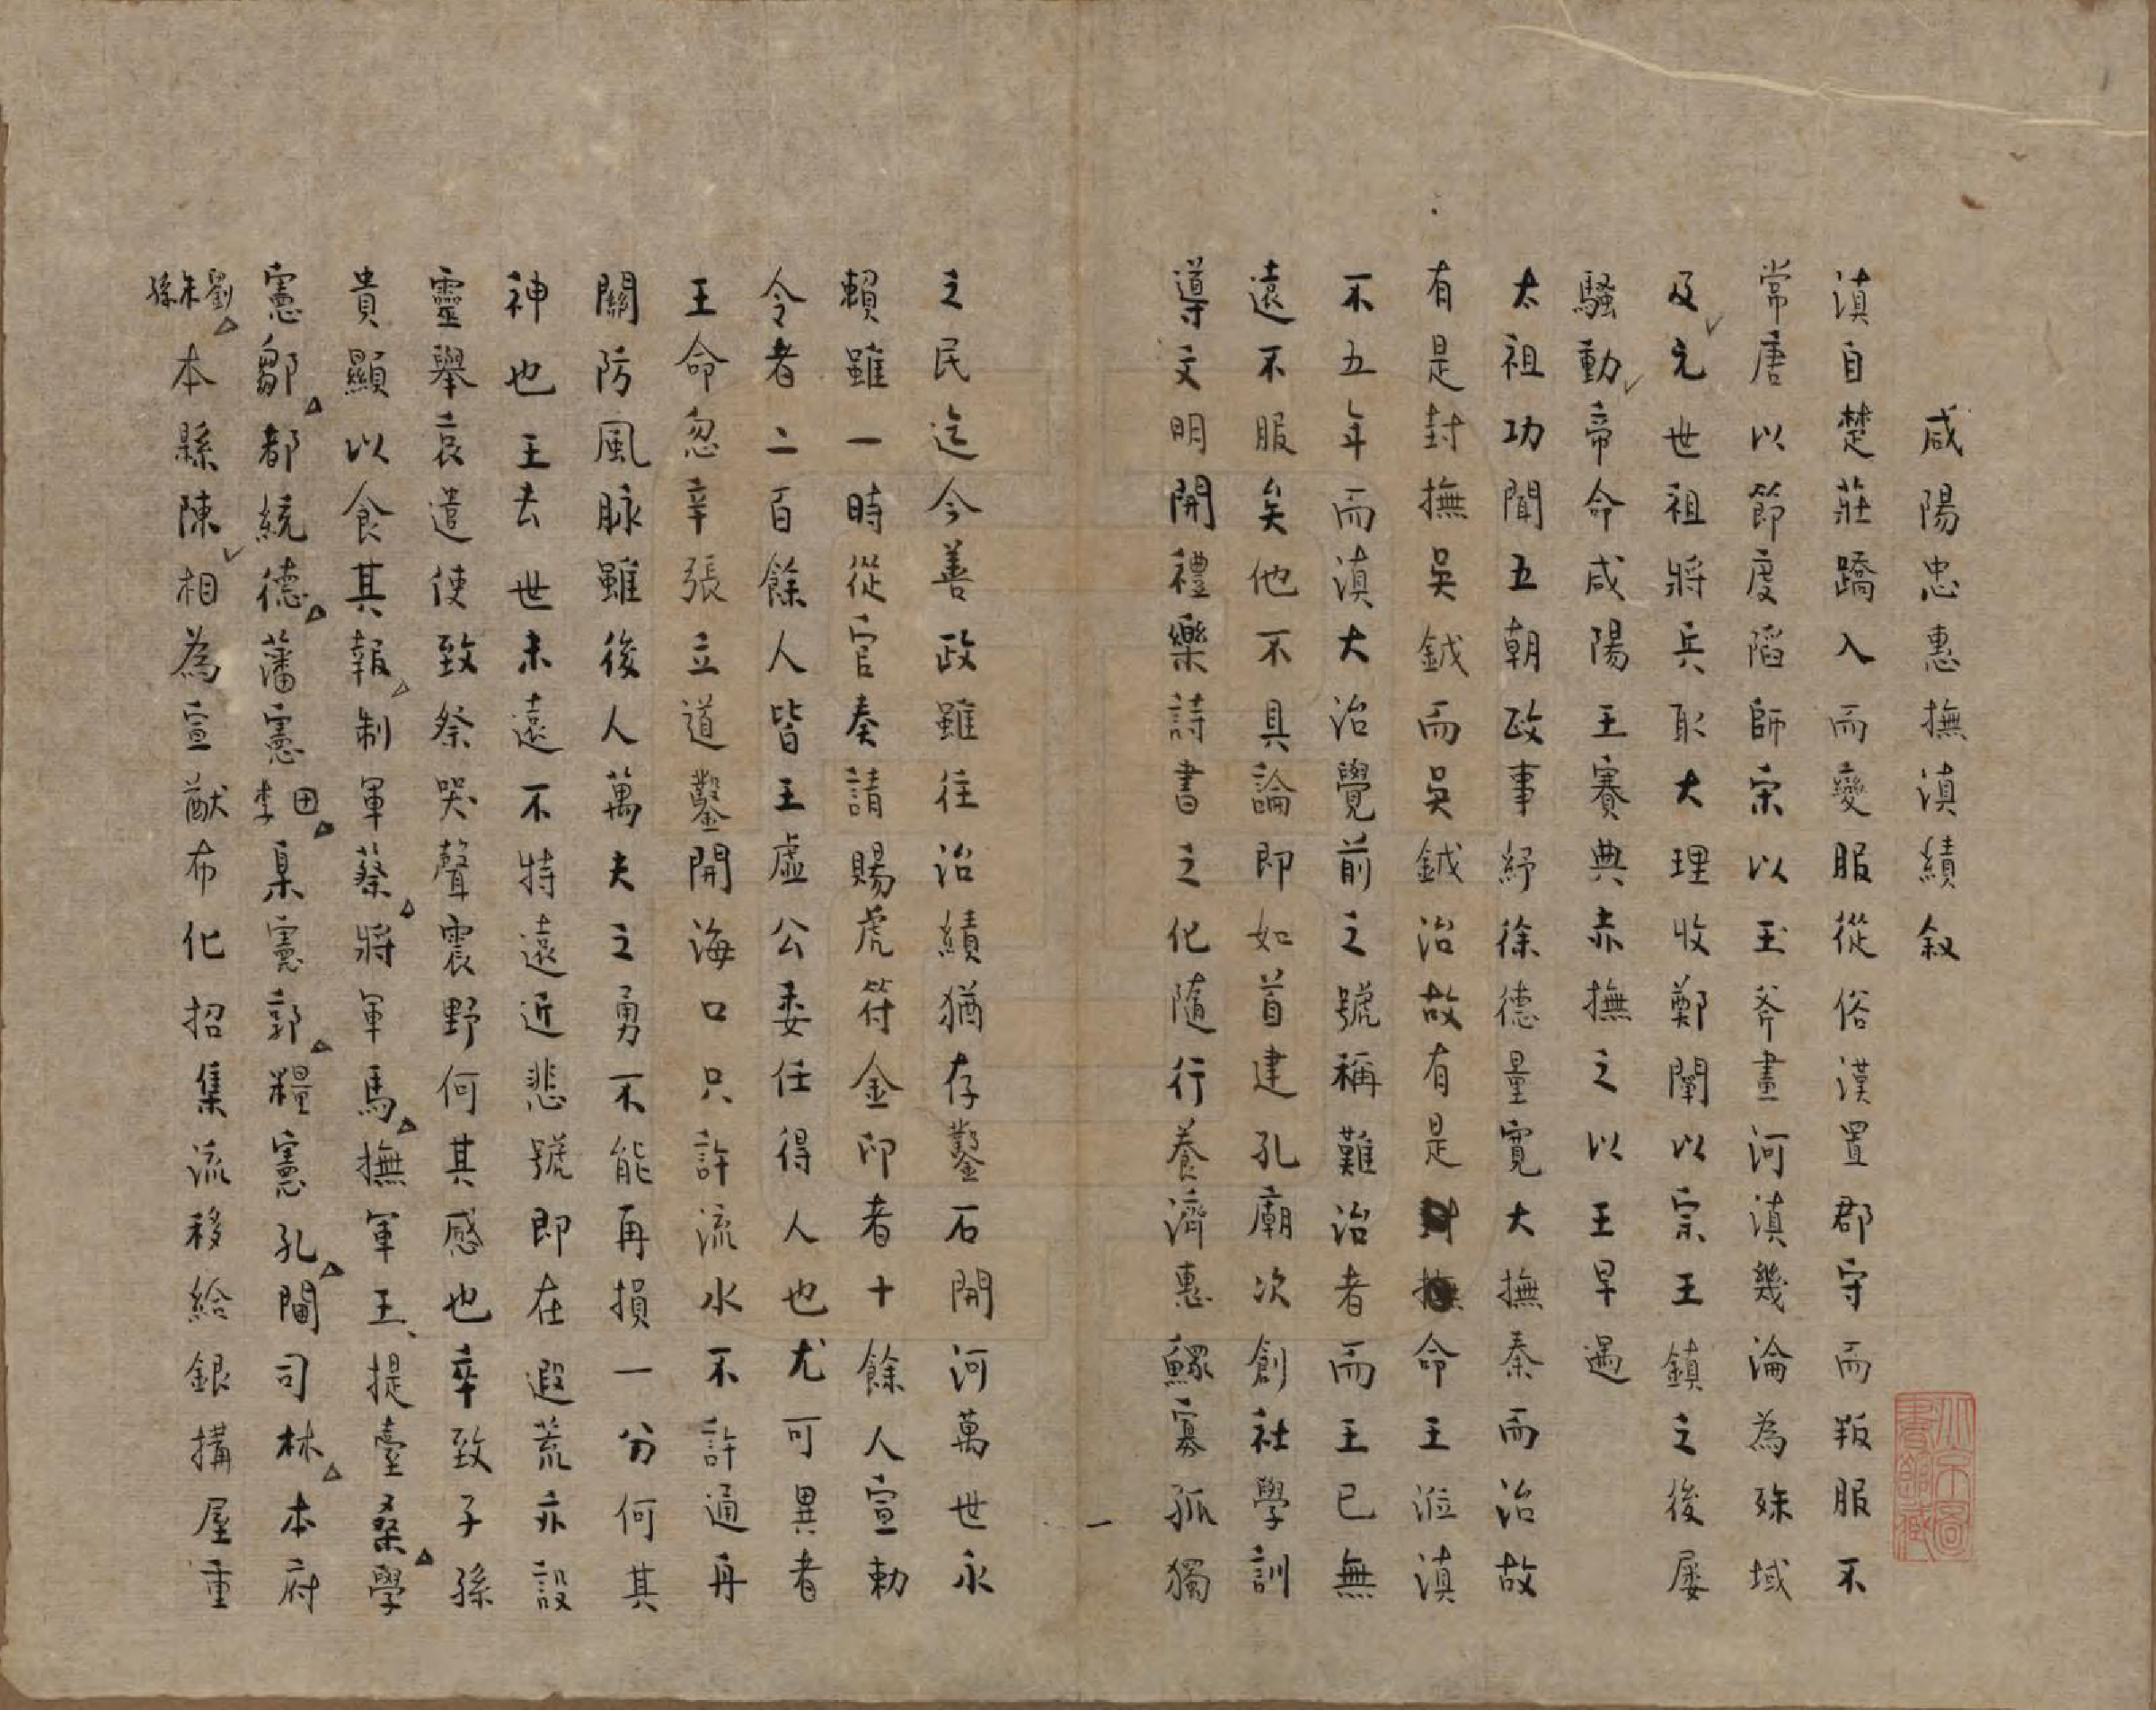 咸陽忠惠撫滇績敘
滇自楚莊蹻入而變服從俗漢置郡守而叛服不
常唐以節度蹈師宋以玉斧畫河滇幾淪為殊域
及元世祖將兵取大理收鄭闡以宗王鎮之後屡
騷動帝命咸陽王賽典赤撫之以王早遇
太祖功聞五朝政事紓徐德量寬大撫秦而治故
有是封撫吳鉞而吳鉞治故有是命王涖滇
不五年而滇大治覺前之號稱難治者而王已無
遠不服矣他不具論即如首建孔廟次創社學訓
導文明開禮樂詩書之化隨行養濟惠鰥寡孤獨
一
之民迄今善政雖往治績猶存鑿石開河萬世永
賴雖一時從官奏請賜虎符金印者十餘人宣勅
令者二百餘人皆王虛公委任得人也尤可異者
王命忽辛張立道鑿開海口只許流水不許通舟
關防風脉雖後人萬夫之勇不能再損一分何其
神也王去世未遠不特遠近悲號即在遐荒亦設
靈舉哀遣使致祭哭聲震野何其感也卒致子孫
貴顯以食其報制軍蔡將軍馬撫軍王提臺桑學
憲鄒都統德藩憲田李臬憲郭糧憲孔閫司林本府
劉朱孫本縣陳相為宣猷布化招集流移給銀搆屋重